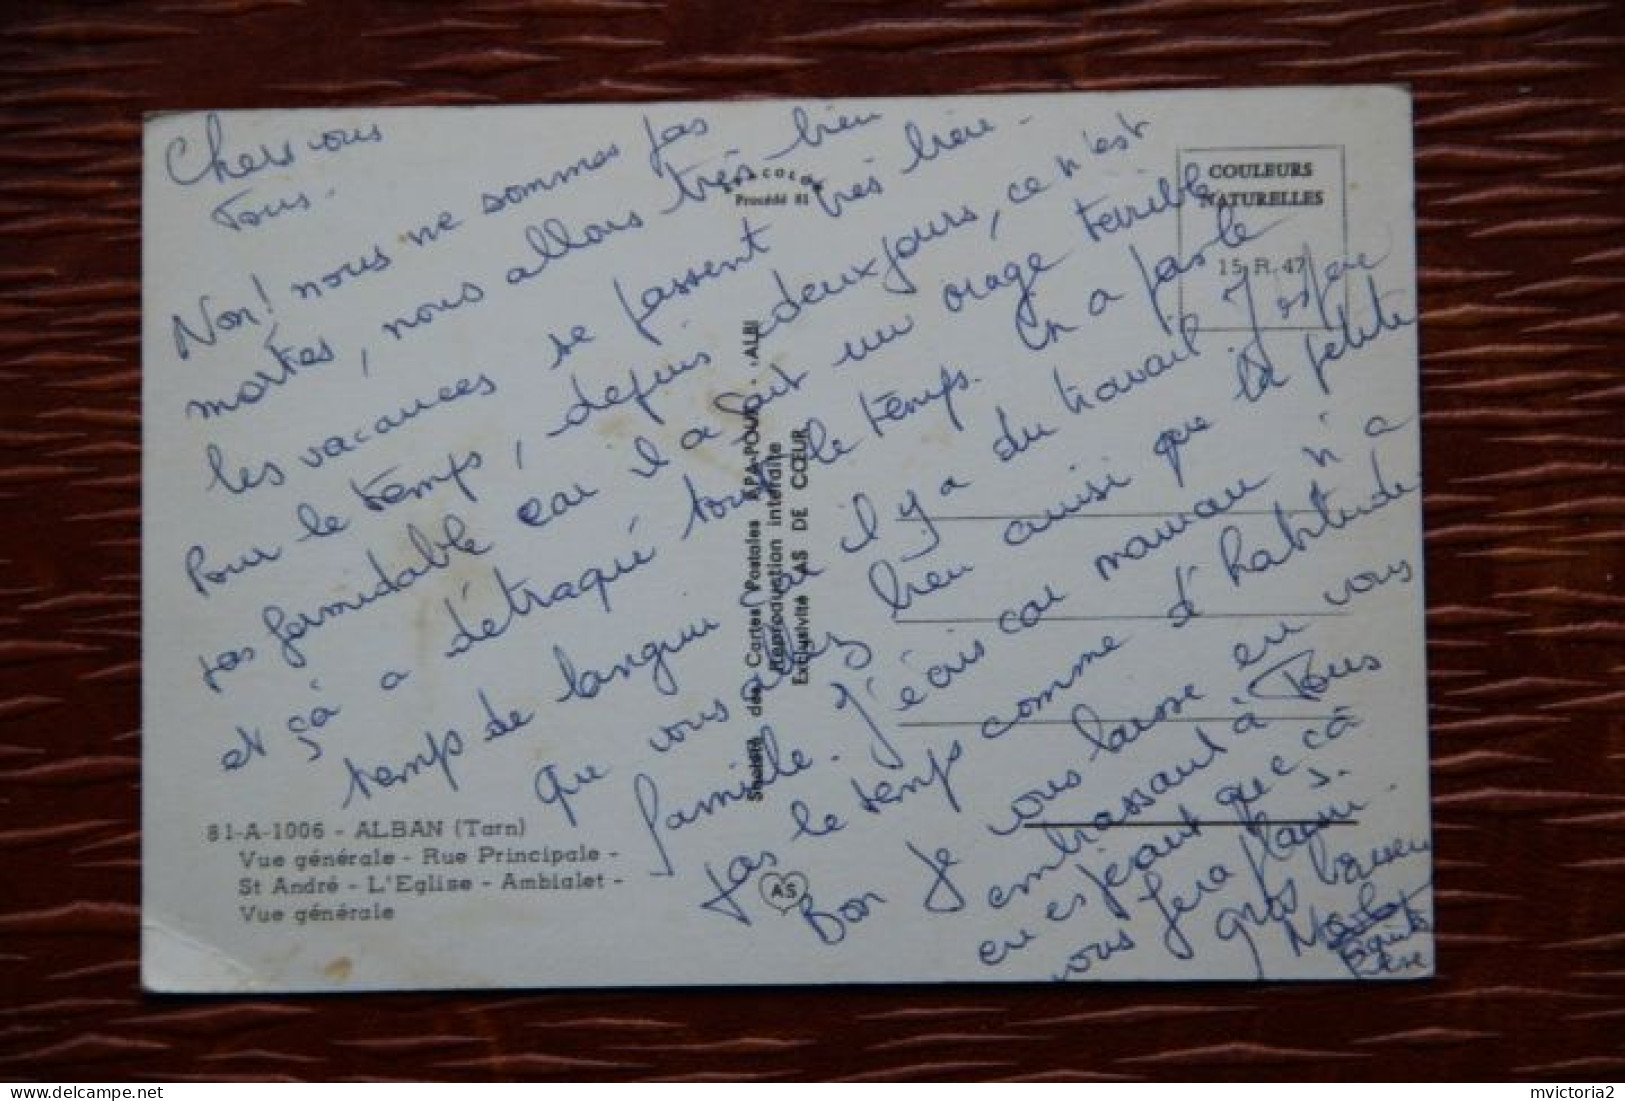 Chers vous
Tous.
Non! nous ne sommes pas
mortes, nous allons très bien
les vacances se passent très bien.
Pour le temps, depuis deux jours, ce n'est
pas formidable car il a fait un orage terrible
et çà a détraqué tout le temps. On a parlé
temps de langui il y a du travail J'espère
que vous allez bien ainsi que la petite
famille. J'écris car maman n'a
pas le temps comme d'habitude
Bon Je vous laisse en vous
embrassant à Tous
en espérant que çà
vous fera plaisir.
gros baiser
EPACOLOR
Procédé 81
COULEURS
NATURELLES
15.R.47
Société des Cartes Postales APA-POUX - ALBI
Reproduction interdite
Exclusivité AS DE CŒUR
AS
81-A-1006 - ALBAN (Tarn)
Vue générale - Rue Principale -
St André - L'Eglise - Ambialet -
Vue générale
mvictoria2